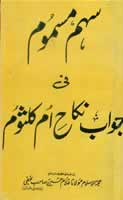 سہم مسموم
فی
جواب نکاح ام کلثوم